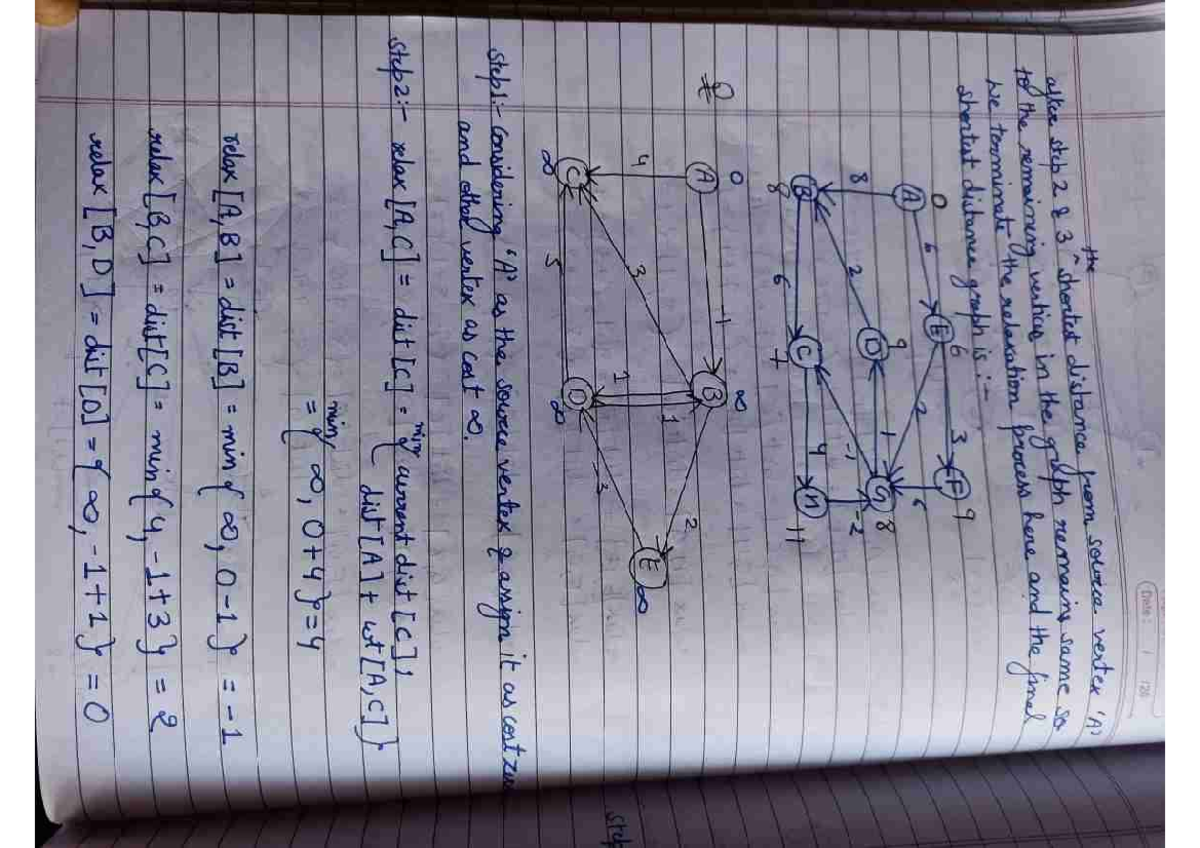 Date:
the
after step 2 & 3 ^ shortest distance from source vertex 'A'
to the remaining vertices in the graph remains same so
we terminate the relaxation process here and the final
shortest distance graph is :-
0
A
6
E
6
3
F
9
8
2
B
8
2
D
9
1
G
8
6
C
7
-1
4
H
11
-2
Q
A
0
-1
B
∞
4
3
1
1
2
E
∞
C
∞
5
D
∞
-3
Step1:- Considering 'A' as the source vertex & assign it as cost zero
and other vertex as cost ∞.
Step2:- relax [A,C] = dist [C] = min{ current dist [C],
dist [A] + wt [A,C]}
= min{ ∞, 0+4} = 4
relax [A,B] = dist [B] = min{ ∞, 0-1} = -1
relax [B,C] = dist [C] = min{ 4, -1+3} = 2
relax [B,D] = dist [D] = { ∞, -1+1} = 0
Step